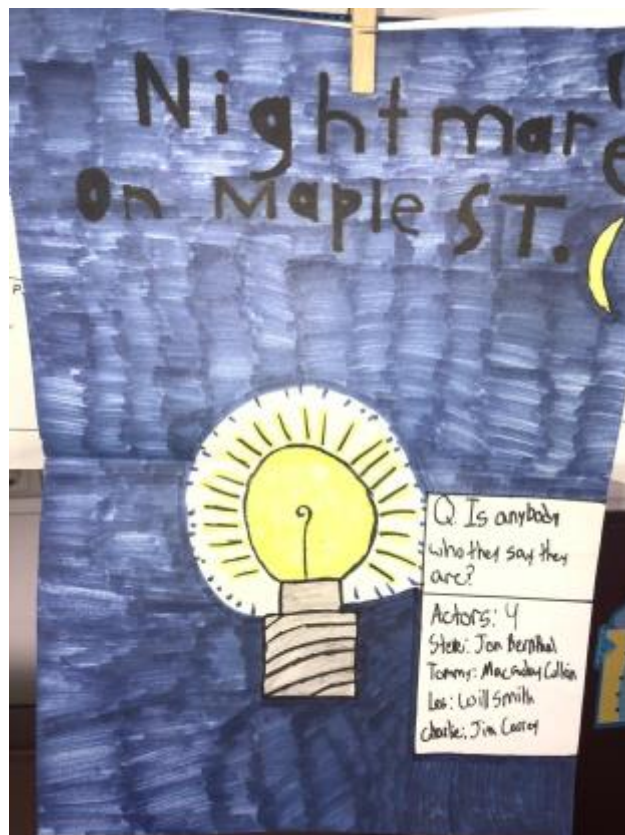 Nightmare
On Maple ST.
Q. Is anybody
who they say they
are?
Actors: 4
Steve: Jon Bernthal
Tommy:
Les: Will Smith
Charlie: Jim Carrey